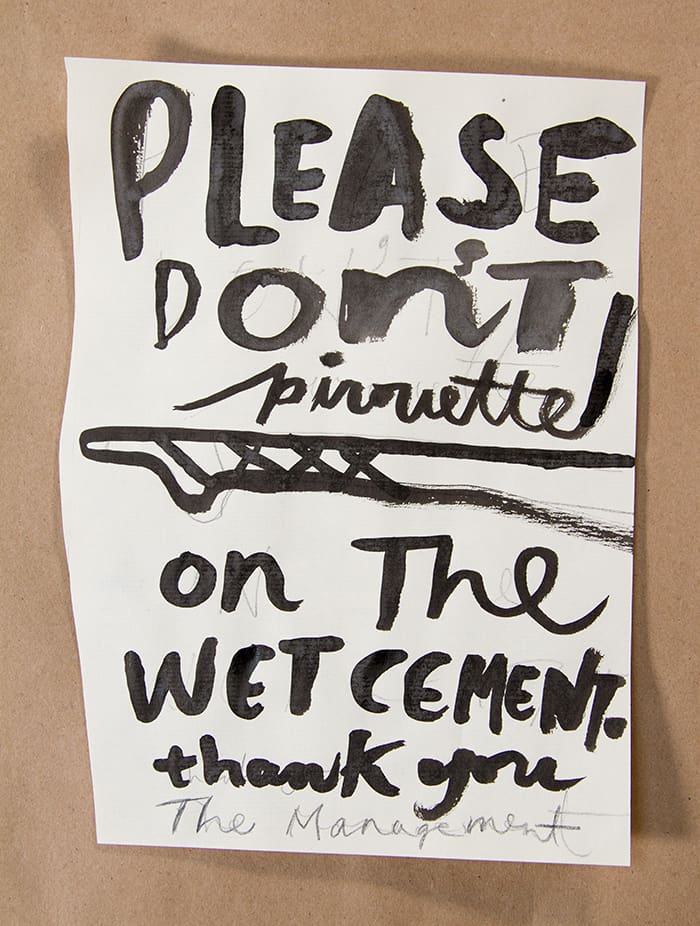 PLEASE
Don'T
pirouette!
on The
WET CEMENT.
thank you
The Management